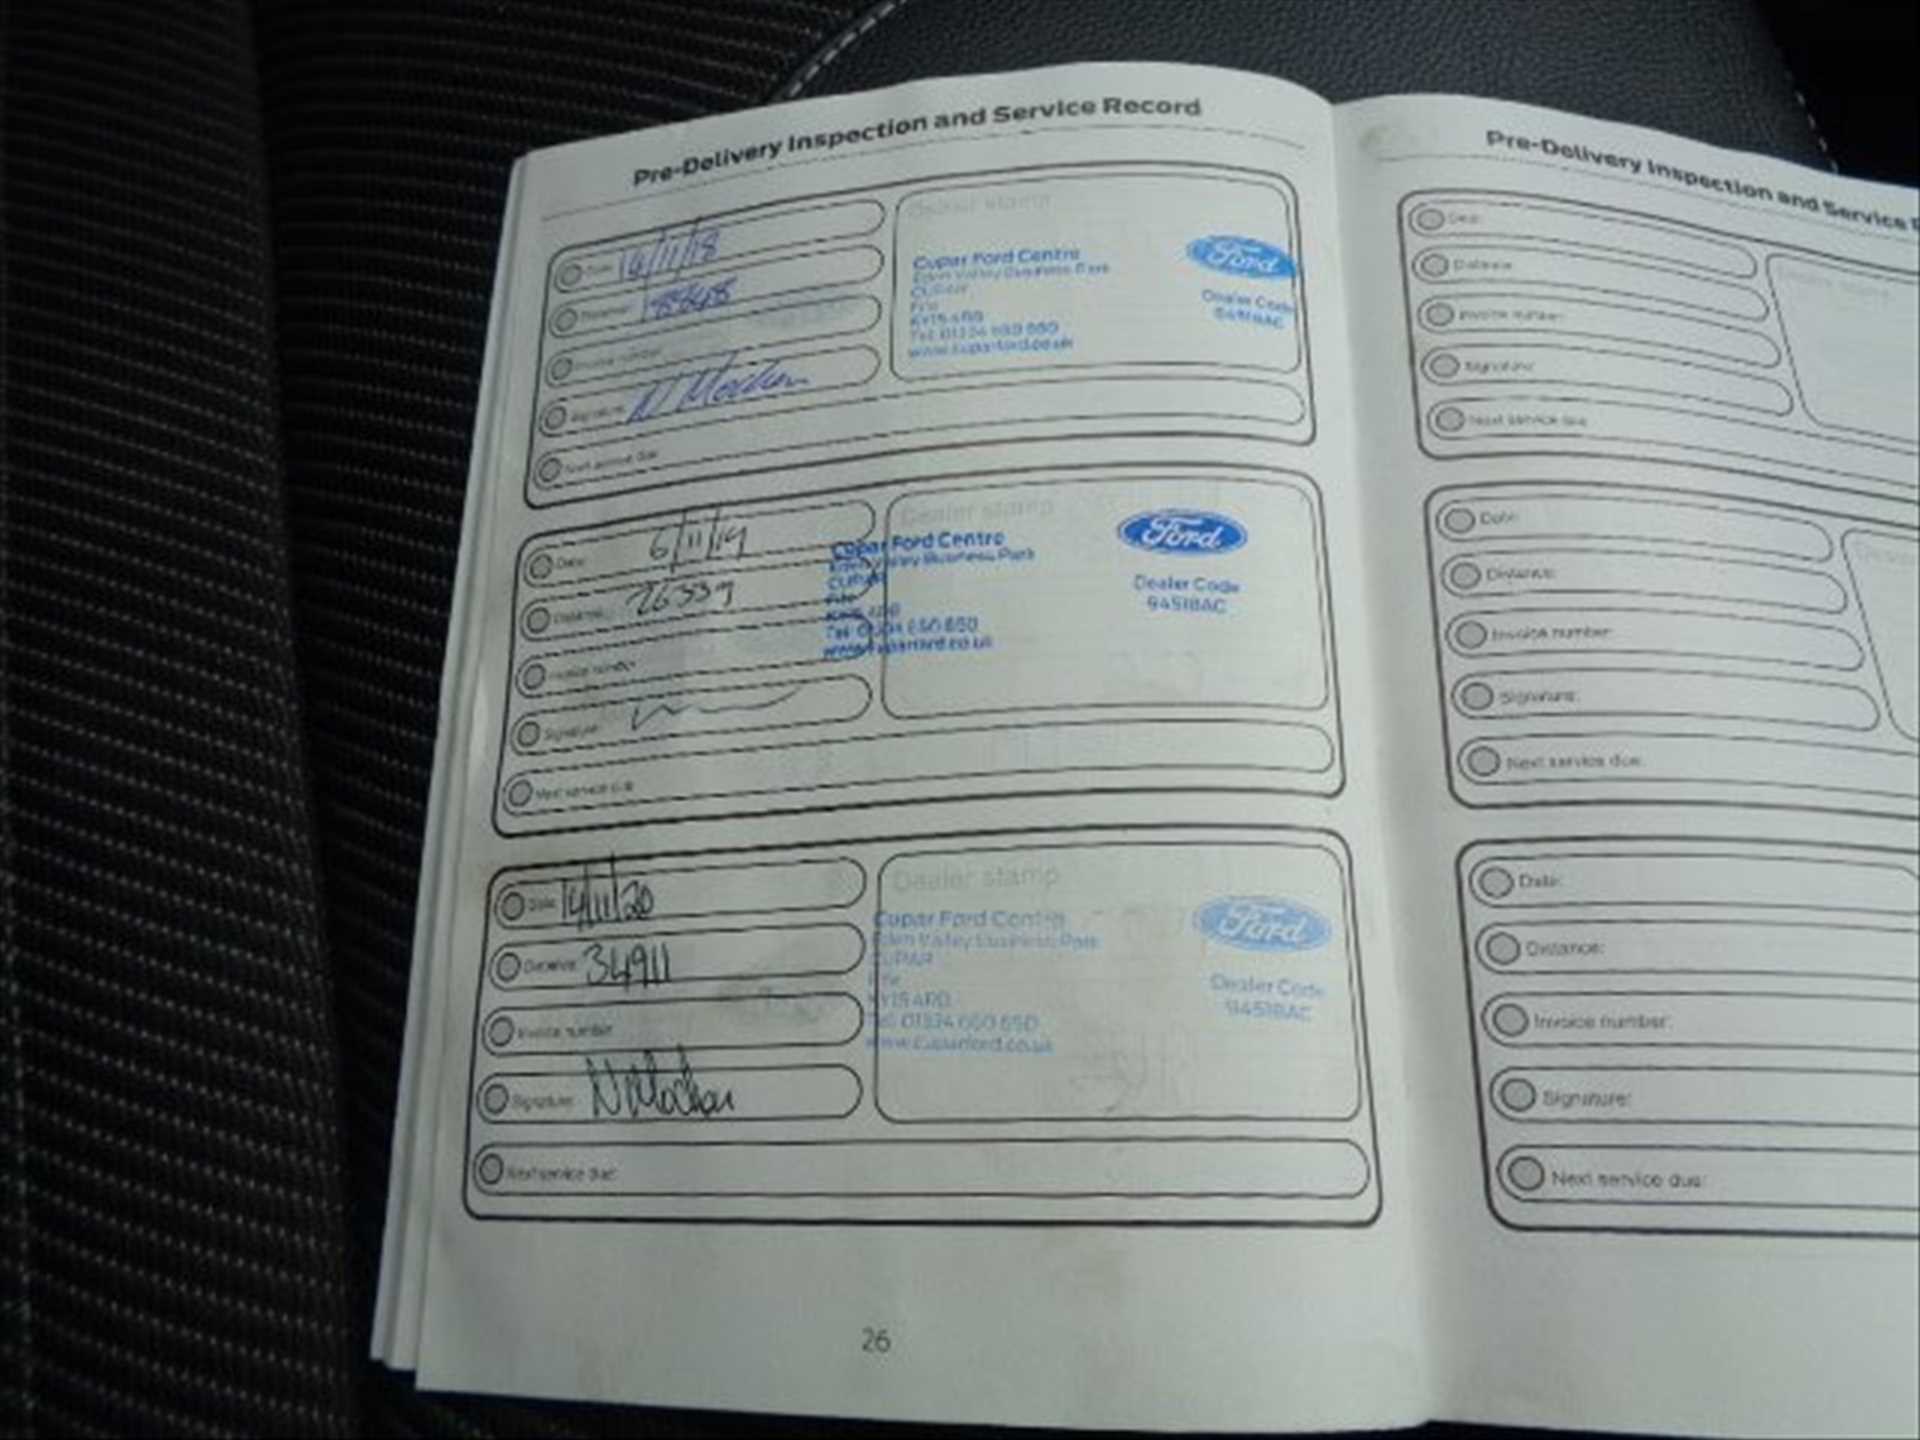 Pre-Delivery Inspection and Service Record
Date: 14/11/18
Distance:
Invoice number:
Signature:
Next service due:
Dealer stamp
Cupar Ford Centre
Eden Valley Business Park
CUPAR
Fife
KY15 4RD
Tel: 01334 650 650
www.cuparford.co.uk
Ford
Dealer Code
94518AC
Date: 6/11/19
Distance: 26339
Invoice number:
Signature:
Next service due:
Dealer stamp
Cupar Ford Centre
Eden Valley Business Park
CUPAR
Fife
KY15 4RD
Tel: 01334 650 650
www.cuparford.co.uk
Ford
Dealer Code
94518AC
Date: 14/11/20
Distance: 34911
Invoice number:
Signature:
Next service due:
Dealer stamp
Cupar Ford Centre
Eden Valley Business Park
CUPAR
Fife
KY15 4RD
Tel: 01334 650 650
www.cuparford.co.uk
Ford
Dealer Code
94518AC
26
Pre-Delivery Inspection and Service
Date:
Distance:
Invoice number:
Signature:
Next service due:
Date:
Distance:
Invoice number:
Signature:
Next service due:
Date:
Distance:
Invoice number:
Signature:
Next service due: